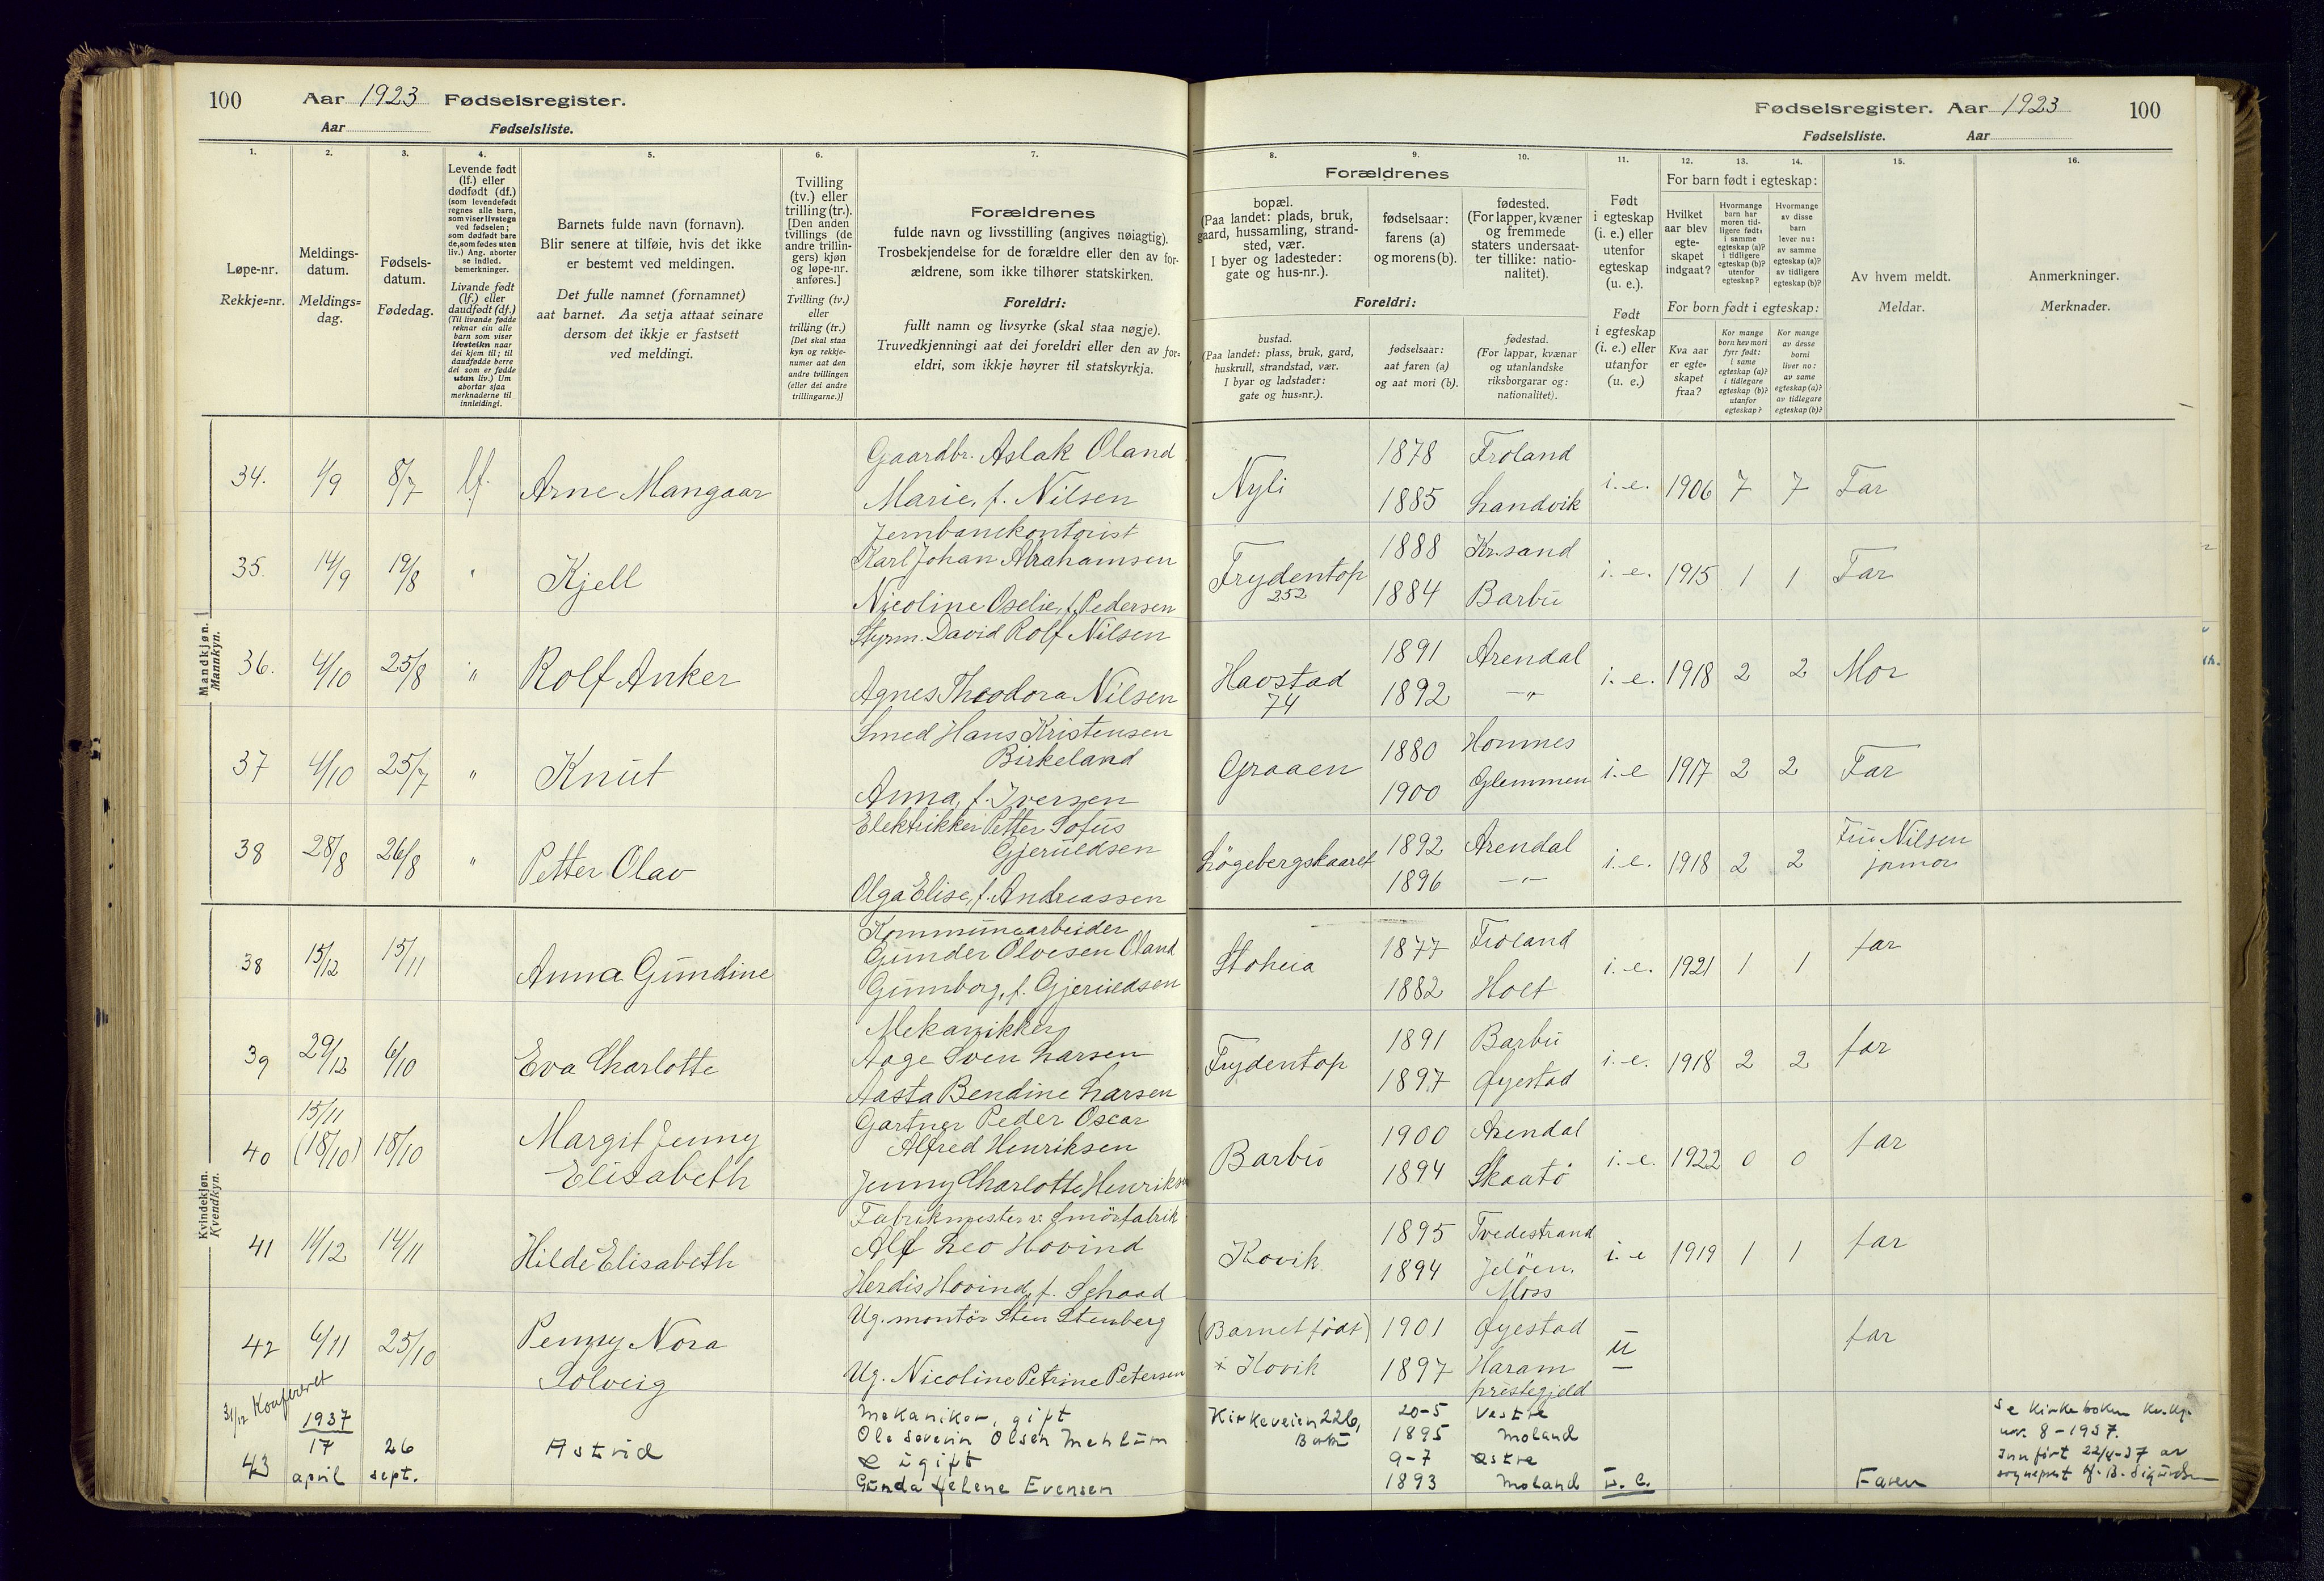 100 Aar 1923 Fødselsregister.
Aar Fødselsliste.
Fødselsregister. Aar 1923 100
Fødselsliste. Aar
1. 2. 3. 4. 5. 6. 7. 8. 9. 10. 11. 12. 13. 14. 15. 16.
Løpe-nr.
Rekkje=nr.
Meldings-
datum.
Meldings=
dag.
Fødsels-
datum.
Fødedag.
Levende født
(lf.) eller
dødfødt (df.)
(som levendefødt
regnes alle barn,
som viser livstegn
ved fødselen;
som dødfødt bare
de, som fødes uten
liv.) Ang. aborter
se indled.
bemerkninger.
Livande født
(lf.) eller
daudfødt (df.)
(Til livande fødde
reknar ein alle
barn som viser
livsteikn naar
dei kjem til; til
daudfødde berre
dei som er fødde
utan liv.) Um
abortar sjaa
merknaderne til
innleidingi.
Barnets fulde navn (fornavn).
Blir senere at tilføie, hvis det ikke
er bestemt ved meldingen.
Det fulle namnet (fornamnet)
aat barnet. Aa setja attaat seinare
dersom det ikkje er fastsett
ved meldingi.
Tvilling
(tv.) eller
trilling (tr.).
[Den anden
tvillings (de
andre trillin-
gers) kjøn
og løpe-nr.
anføres.]
Tvilling (tv.)
eller
trilling (tr.)
[Det skal staa
kyn og rekkje-
numer aat den
andre tvillingen
(eller dei andre
trillingarne.)]
Forældrenes
fulde navn og livsstilling (angives nøiagtig).
Trosbekjendelse for de forældre eller den av for-
ældrene, som ikke tilhører statskirken.
Foreldri:
fullt namn og livsyrke (skal staa nøgje).
Truvedkjenningi aat dei foreldri eller den av for=
eldri, som ikkje høyrer til statskyrkja.
Forældrenes
bopæl.
(Paa landet: plads, bruk,
gaard, hussamling, strand-
sted, vær.
I byer og ladesteder:
gate og hus-nr.).
fødselsaar:
farens (a)
og morens (b).
fødested.
(For lapper, kvæner
og fremmede
staters undersaat-
ter tillike: natio-
nalitet).
Foreldri:
bustad.
(Paa landet: plass, bruk, gard,
huskrull, strandstad, vær.
I byar og ladstader:
gate og hus=nr.).
fødselsaar:
aat faren (a)
og aat mori (b).
fødestad.
(For lappar, kvænar
og utanlandske
riksborgarar og:
nationalitet).
Født
i egteskap
(i. e.) eller
utenfor
egteskap
(u. e.).
Født
i egteskap
(i. e.) eller
utanfor
(u. e.)
For barn født i egteskap:
Hvilket
aar blev
egte-
skapet
indgaat?
Hvormange
barn har
moren tid-
ligere født:
i samme
egteskap (a)?
i tidligere
egteskap (b)?
utenfor
egteskap?
Hvormange
av disse
barn
lever nu:
av samme
egteskap (a)?
av tidligere
egteskap (b)?
For born født i egteskap:
Kva aar
er egte=
skapet
fraa?
Kor mange
born hev mori
fyrr født:
i same
egteskap (a)?
i tidlegare
egteskap (b)?
utanfor
egteskap?
Kor mange
av desse
borni
liver no:
av same
egteskap (a)?
av tidlegare
egteskap (b)?
Av hvem meldt.
Meldar.
Anmerkninger.
Merknader.
Mandkjøn.
Mannkyn.
34. 1/9 8/7 lf. Arne Mangaar
Gaardbr. Aslak Oland
Marie, f. Nilsen
Nyli 1878 Froland
1885 Landvik
i. e. 1906 7 7 Far
35. 14/9 19/8 " Kjell
Jernbanekontorist
Karl Johan Abrahamsen
Nicoline Oselie, f. Pedersen
Frydentop
252
1888 Kr.sand
1884 Barbu
i. e. 1915 1 1 Far
36. 4/10 25/8 " Rolf Anker
Styrm. David Rolf Nilsen
Agnes Theodora Nilsen
Havstad
74
1891 Arendal
1892 —"—
i. e. 1918 2 2 Mor
37 4/10 25/7 " Knut
Smed Hans Kristensen
Birkeland
Anna, f. Iversen
Graaen
1880 Hommes
1900 Glemmen
i. e 1917 2 2 Far
38 28/8 26/8 " Petter Olav
Elektriker Petter Sofus
Gjeruldsen
Olga Elise, f. Andreassen
Løgebergskaaret
1892 Arendal
1896 —"—
i. e. 1918 2 2 Fru Nilsen
jormor
Kvindekjøn.
Kvendkyn.
38 15/12 15/11 Anna Gundine
Kommunearbeider
Gunder Olvesen Oland
Gunnborg, f. Gjeruldsen
Stoheia
1877 Froland
1882 Holt
i. e. 1921 1 1 far
39 29/12 6/10 Eva Charlotte
Mekaniker
Aage Sven Larsen
Aasta Bendine Larsen
Frydentop
1891 Barbu
1897 Øyestad
i. e. 1918 2 2 far
15/11
40 (18/10) 18/10 Margit Jenny
Elisabeth
Gartner Peder Oscar
Alfred Henriksen
Jenny Charlotte Henriksen
Barbu
1900 Arendal
1894 Skaatø
i. e. 1922 0 0 far
41 11/12 14/11 Hilde Elisabeth
Fabrikmester v. Smørfabrik
Alf Leo Hovind
Herdis Hovind, f. Schaad
Kovik
1895 Tvedestrand
1894 Jeløen,
Moss
i. e 1919 1 1 far
42 6/11 25/10 Penny Nora
Solveig
Ug. montør Sten Stenberg
Ug. Nicoline Petrine Petersen
(Barnet født)
i Kovik
1901 Øyestad
1897 Haram
prestegjeld
u far
31/12 Konfereret
1937
43 17 april 26 sept. Astrid
Mekaniker, gift
Ole Severin Olsen Mehlum
& ugift
Gunda Helene Evensen
Kirkeveien 226,
Barbu
20-5 Vestre
1895 Moland
9-7 Østre
1893 Moland
u. e. Faren
Se Kirkeboken Kv.kj.
nr. 8-1937.
Innført 22/4-37 av
sogneprest